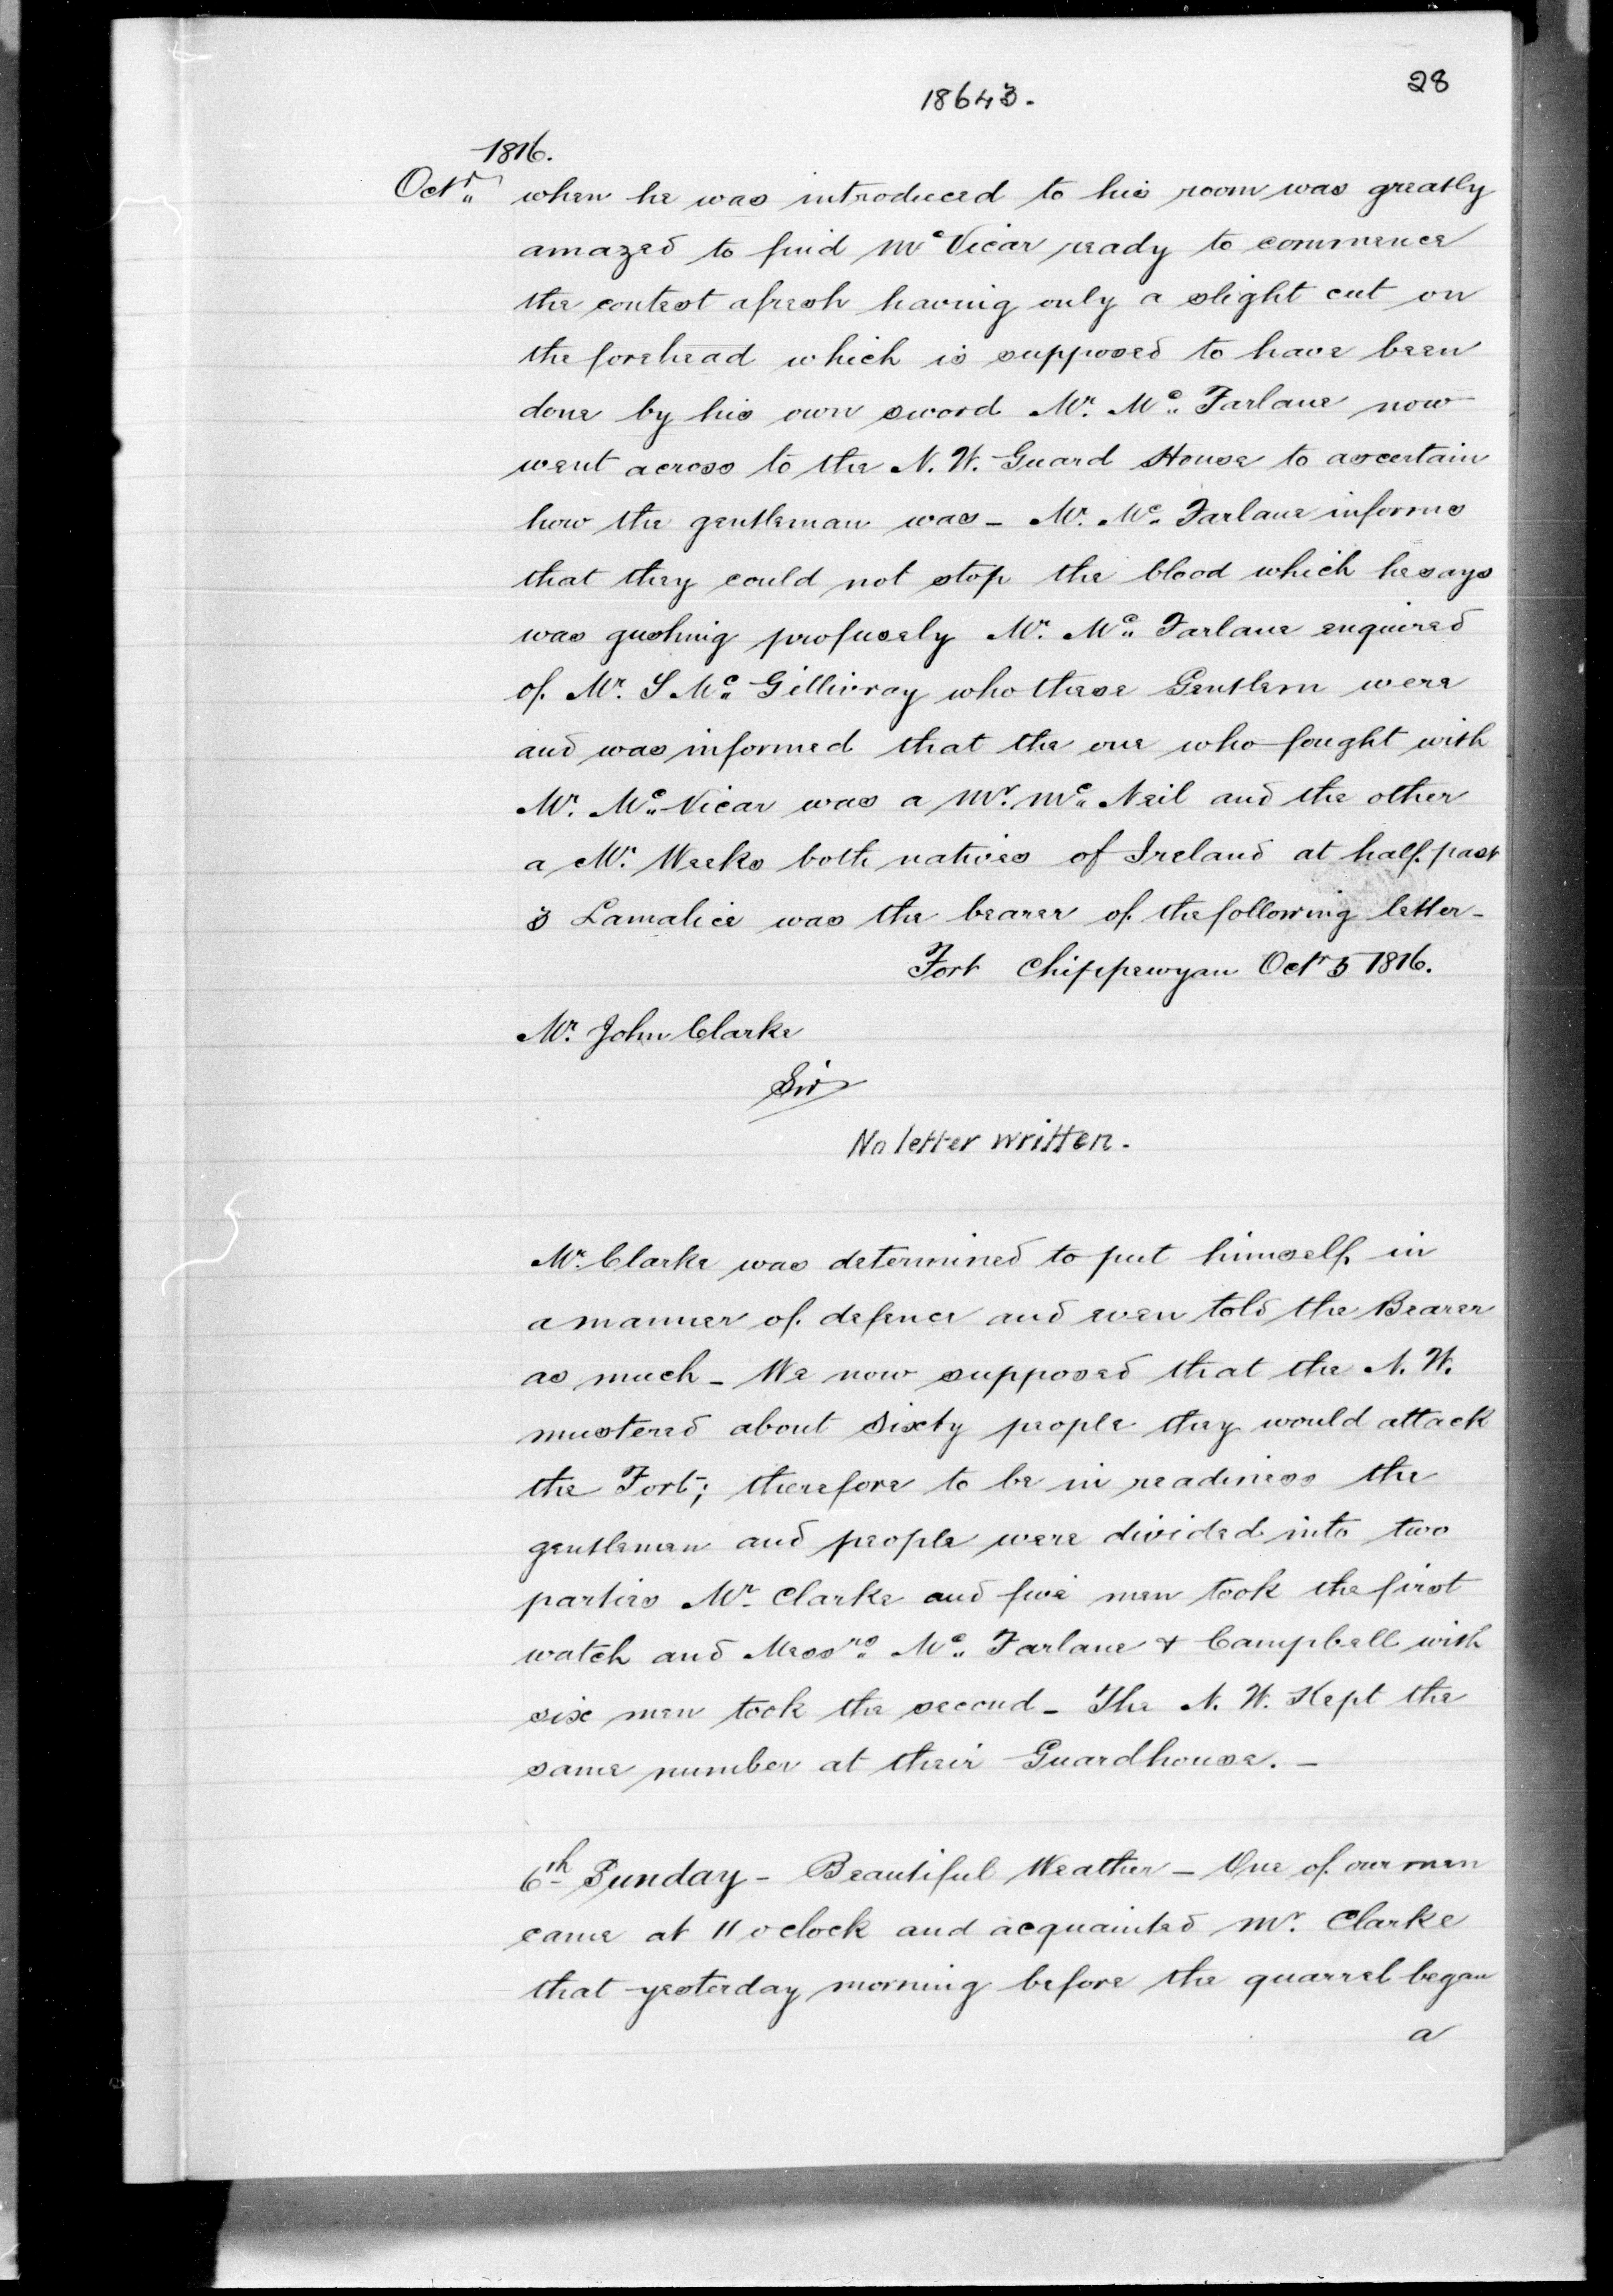 28
18643.
1816.
Octr. when he was introduced to his room was greatly
amazed to find Mc Vicar ready to commence
the contest afresh having only a slight cut on
the forehead which is supposed to have been
done by his own sword Mr. Mc. Farlane now
went across to the N. W. Guard House to ascertain
how the gentleman was - Mr. Mc. Farlane informs
that they could not stop the blood which he says
was gushing profusely Mr. Mc. Farlane enquired
of Mr. S Mc. Gillivray who these Gentlem were
and was informed that the one who fought with
Mr. Mc. Vicar was a Mr. Mc. Neil and the other
a Mr. Weeks both natives of Ireland at half past
3 Lamalice was the bearer of the following letter -
Fort Chippewyan Octr 5 1816.
Mr. John Clarke
Sir
No letter written.
Mr. Clarke was determined to put himself in
a manner of defence and even told the Bearer
as much - We now supposed that the N. W.
mustered about Sixty people they would attack
the Fort; therefore to be in readiness the
gentlemen and people were divided into two
parties Mr. Clarke and five men took the first
watch and Messrs. Mc. Farlane & Campbell with
six men took the second - The N. W. Kept the
same number at their Guardhouse. -
6th Sunday - Beautiful Weather - One of our men
came at 11 oclock and acquainted Mr. Clarke
that yesterday morning before the quarrel began
a